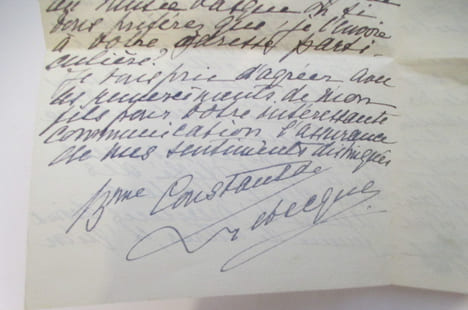 au musée Basque ou si
vous préférez que je l'envoie
à votre adresse parti-
culière?
Je vous prie d'agréer avec
les remerciements de mon
fils pour votre intéressante
communication l'assurance
de mes sentiments distingués
Bnne Constant de